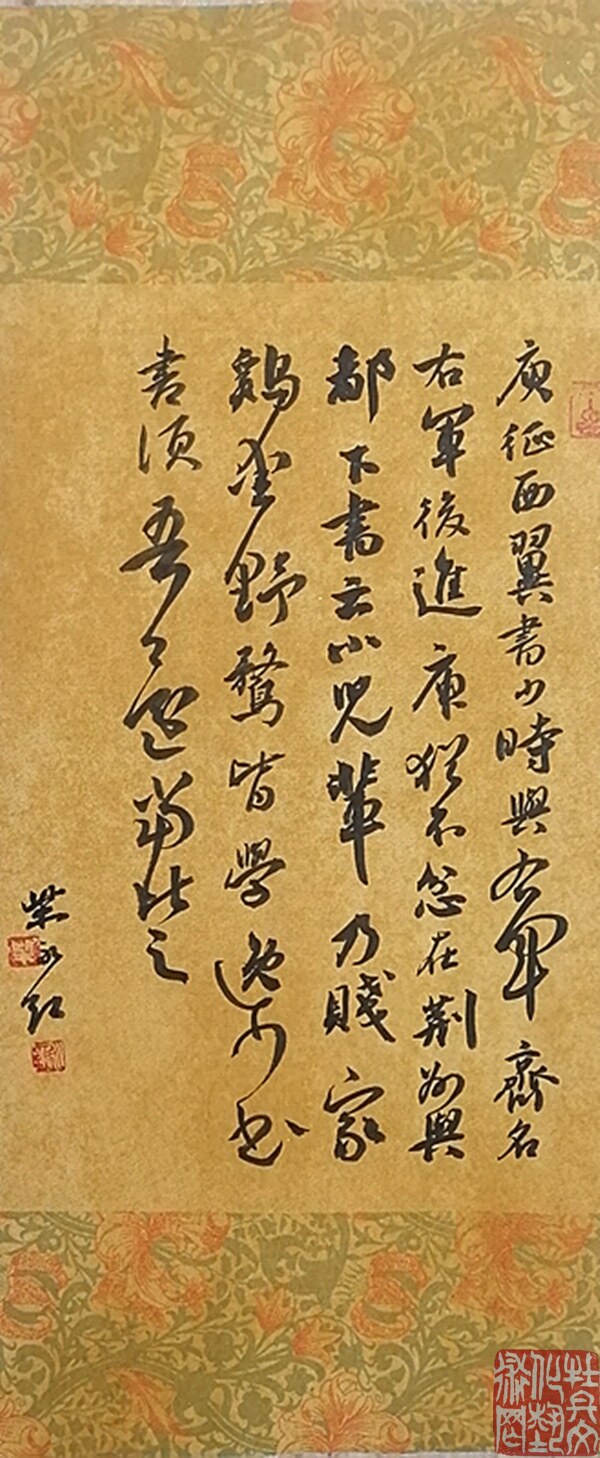 庾征西翼書少時與右軍齊名
右軍後進庾猶不忿在荆州與
都下書云小兒輩乃賤家
鷄愛野鶩皆學逸少書
書須吾還當比之
柴永红